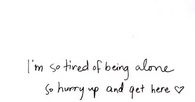 I'm so tired of being alone
so hurry up and get here ♡